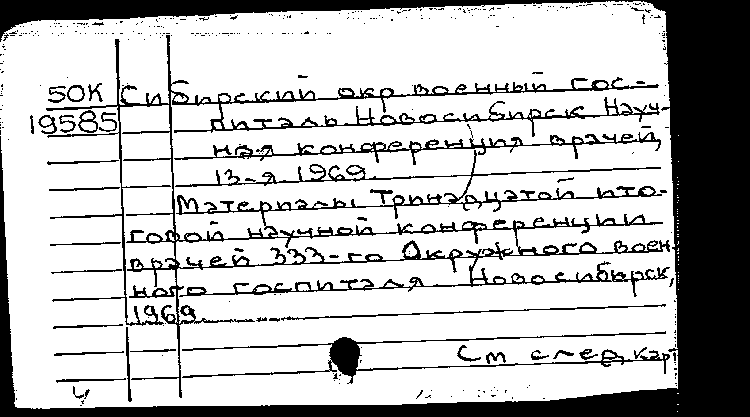 50К Сибирский окр военный гос-
19585 питаль Новосибирск Науч-
ная конференция врачей,
13-я 1969.
Материалы Тринадцатой ито-
говой научной конференции
врачей 333-го Окружного воен-
ного госпиталя. Новосибирск,
1969.
См след. карт